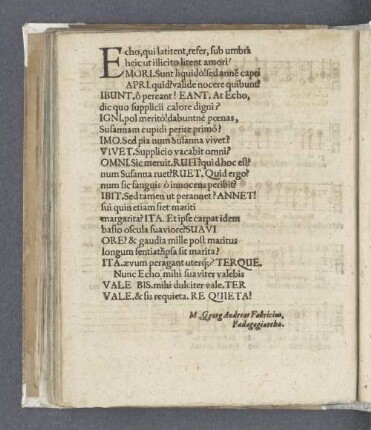 Echo, qui latitent, refer, sub umbrâ
heic ut illicito litent amori?
MORI. Sunt liquidò! sed anne capti
APRI. quid? valide nocere quibunt?
IBUNT. ô pereant! EANT. At Echo,
dic quo supplicii calore digni?
IGNI. pol meritò! dabuntne pœnas,
Susannam cupidi perire primò?
IMO. Sed pia num Susanna vivet?
VIVET. Supplicio vacabit omni?
OMNI. Sic meruit. RUIT! quid hoc est?
num Susanna ruet? RUET. Quid ergo?
num sic sanguis ô innocens peribit?
IBIT. Sed tamen ut perannet? ANNET!
sui quin etiam siet mariti
margarita? ITA. Et ipse carpat idem
basio oscula suaviore? SUAVI
ORE? & gaudia mille post maritus
longum sentiat? ipsa sit marita?
ITA. ævum peragant uterque? TERQUE.
Nunc Echo. mihi suaviter valebis
VALE BIS. mihi dulciter vale. TER
VALE. & sis requieta. RE QUIETA!
M. Georg Andreas Fabricius,
Pædagogiarcha.